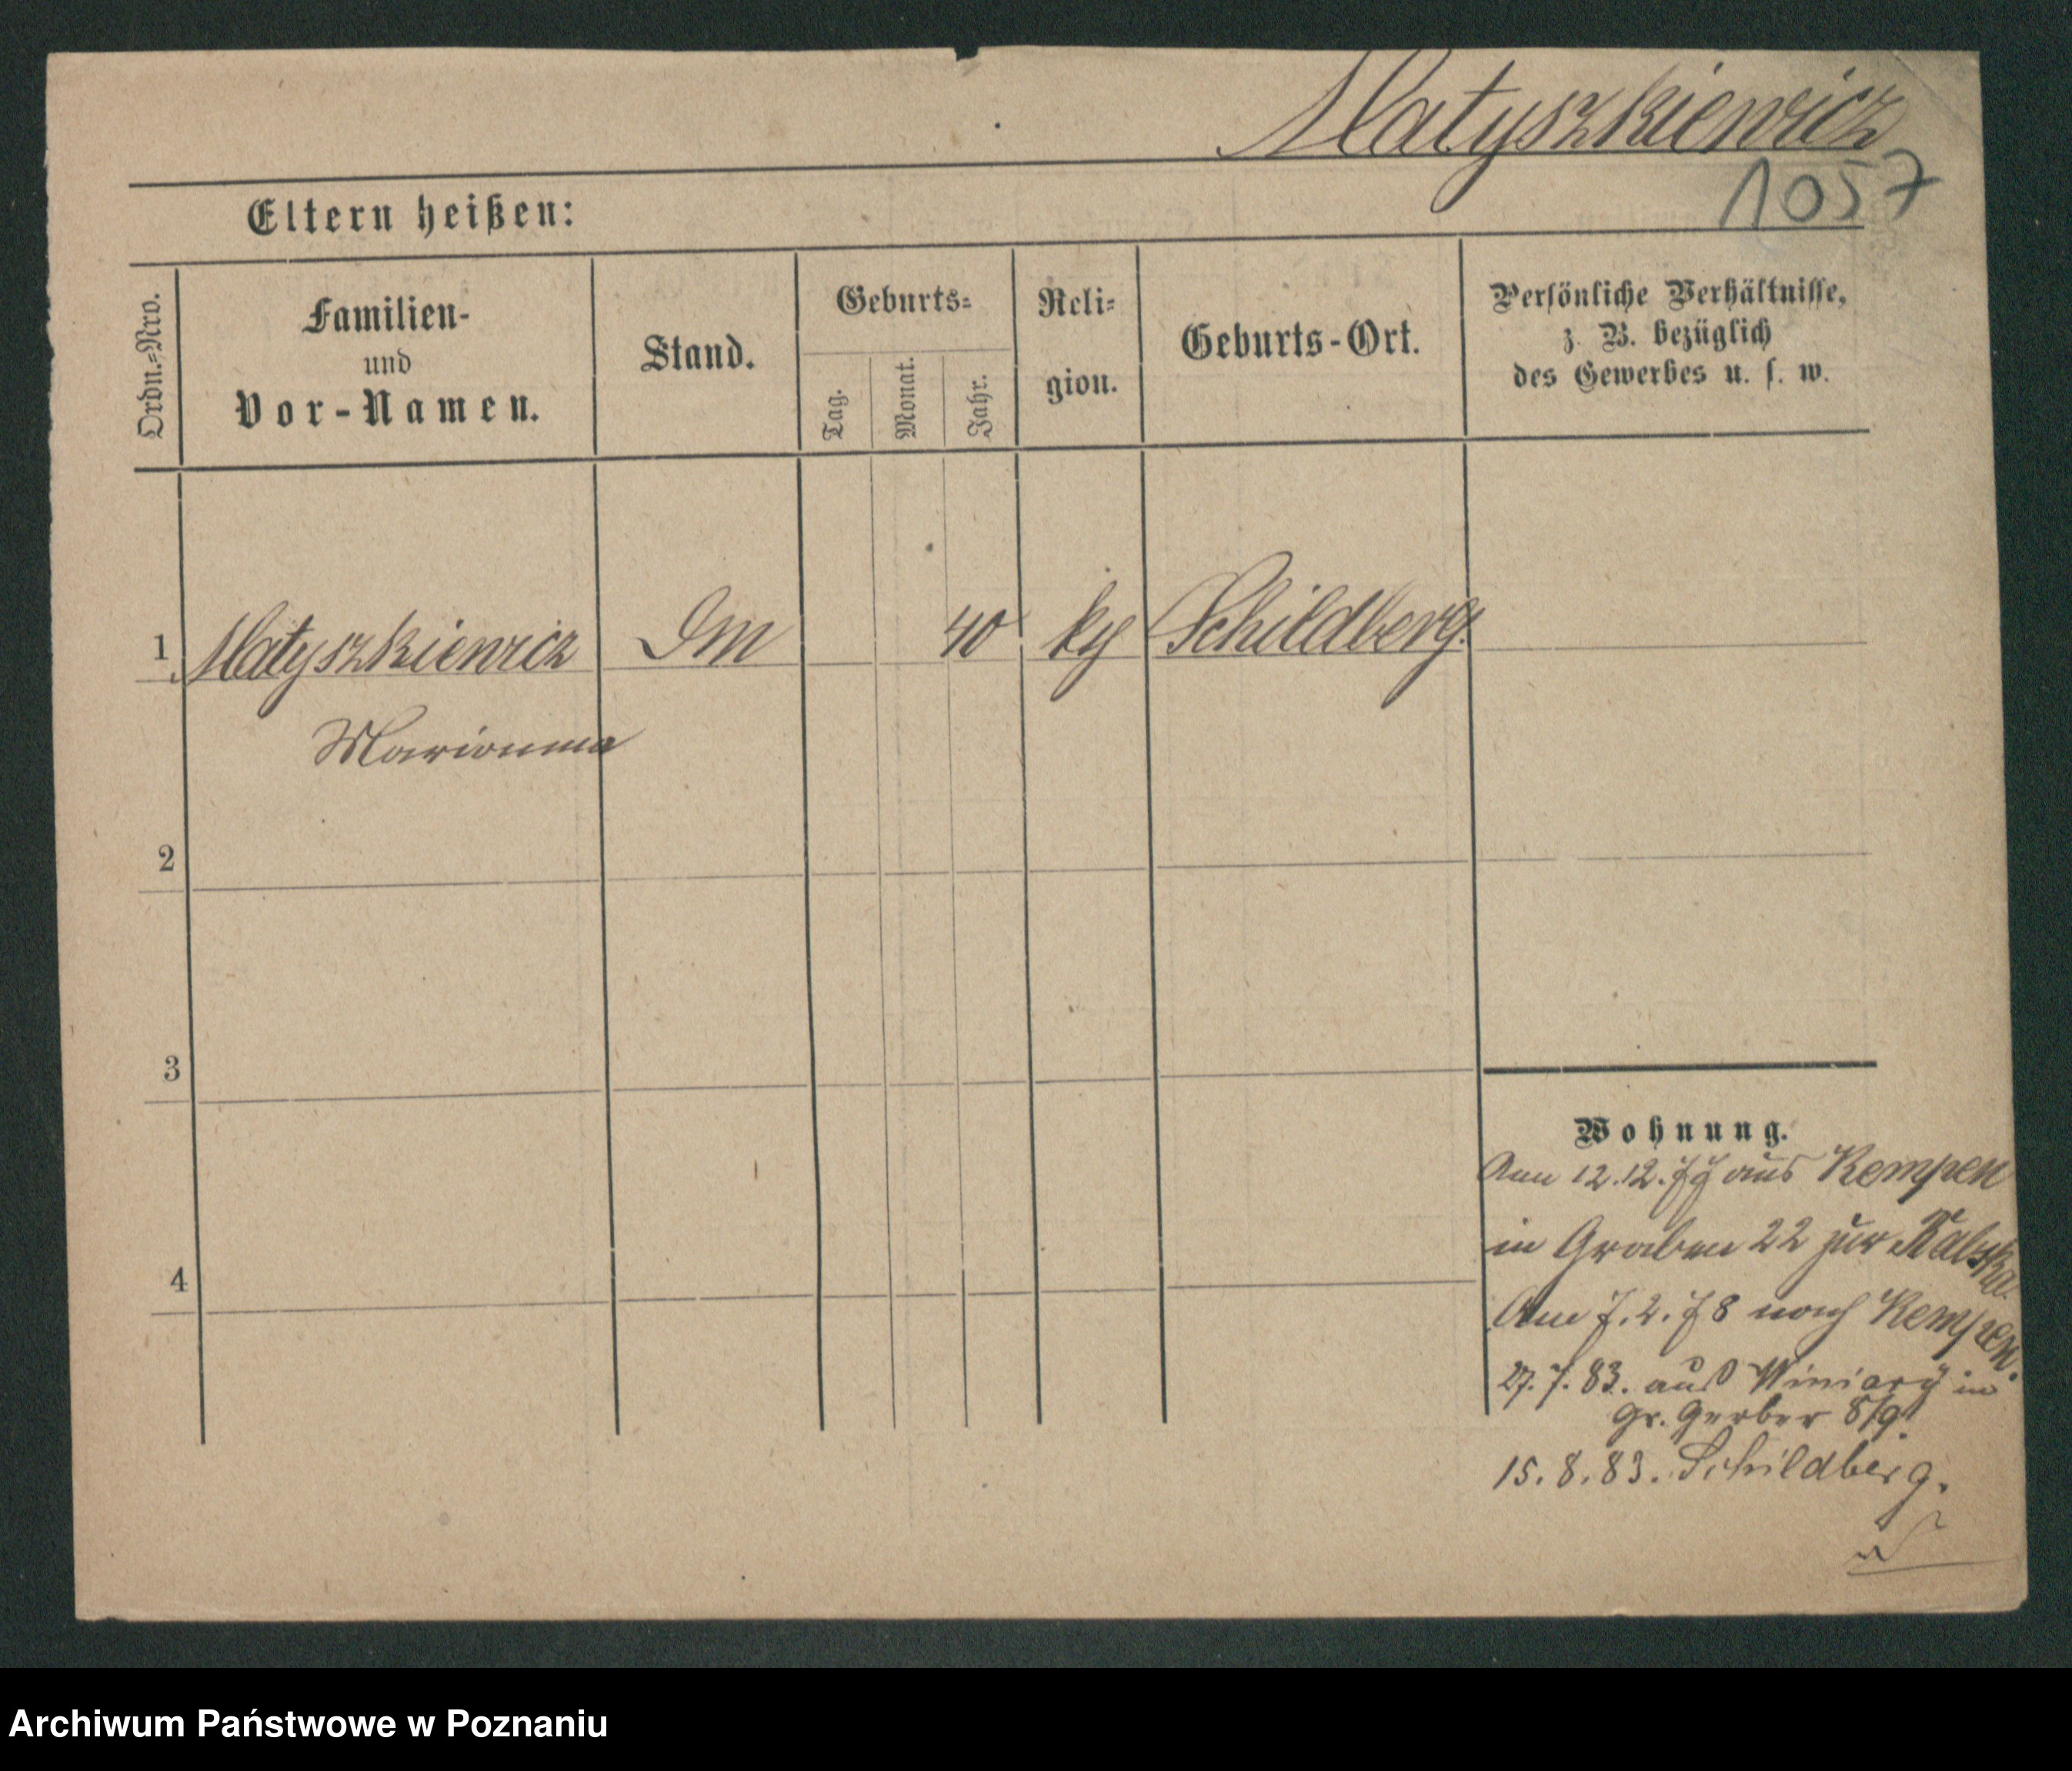 Matyszkiewicz
1057
Eltern heißen:
Ordn.=Nro.
Familien-
und
Vor-Namen.
Stand.
Geburts=
Tag.
Monat.
Jahr.
Reli=
gion.
Geburts-Ort.
Persönliche Verhältnisse,
z. B. bezüglich
des Gewerbes u. s. w.
1 Matyszkiewicz 40 Schildberg.
Marianna
2
3
4
Wohnung.
Am 12.12.77 aus Kempen
in Graben 22 zur
Am 7.2.78 nach Kempen.
27.7.83. aus Winiary in
Gr. Gerber 8/9
15.8.83. Schildberg.
Archiwum Państwowe w Poznaniu